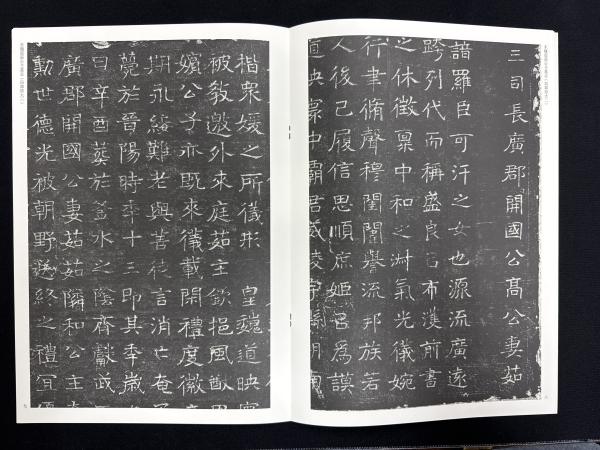 三司長廣郡開國公髙公妻茹
諳羅臣可汗之女也源流廣遠
跨列代而稱盛良已布濩前書
之休徵稟中和之淑氣光儀婉
行聿脩聲穆閨闈譽流邦族若
人後己履信思順庶姬
道映寰中霸君威
揩眾媛之所儀形 皇魏道映
被敎邀外來庭茹主欽挹風猷
嬪公子亦既來儀載閑禮度徽
期永綏難老與善徒言消亡奄
薨於晉陽時年十三即其年歲
日辛酉葬於釜水之陰齊獻武
廣郡開國公妻茹茹閵和公主
勳世德光被朝野送終之禮宜優